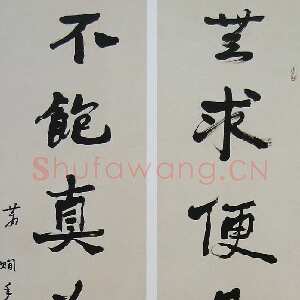 無求便
不飽真
萧娴书
Shufawang.CN